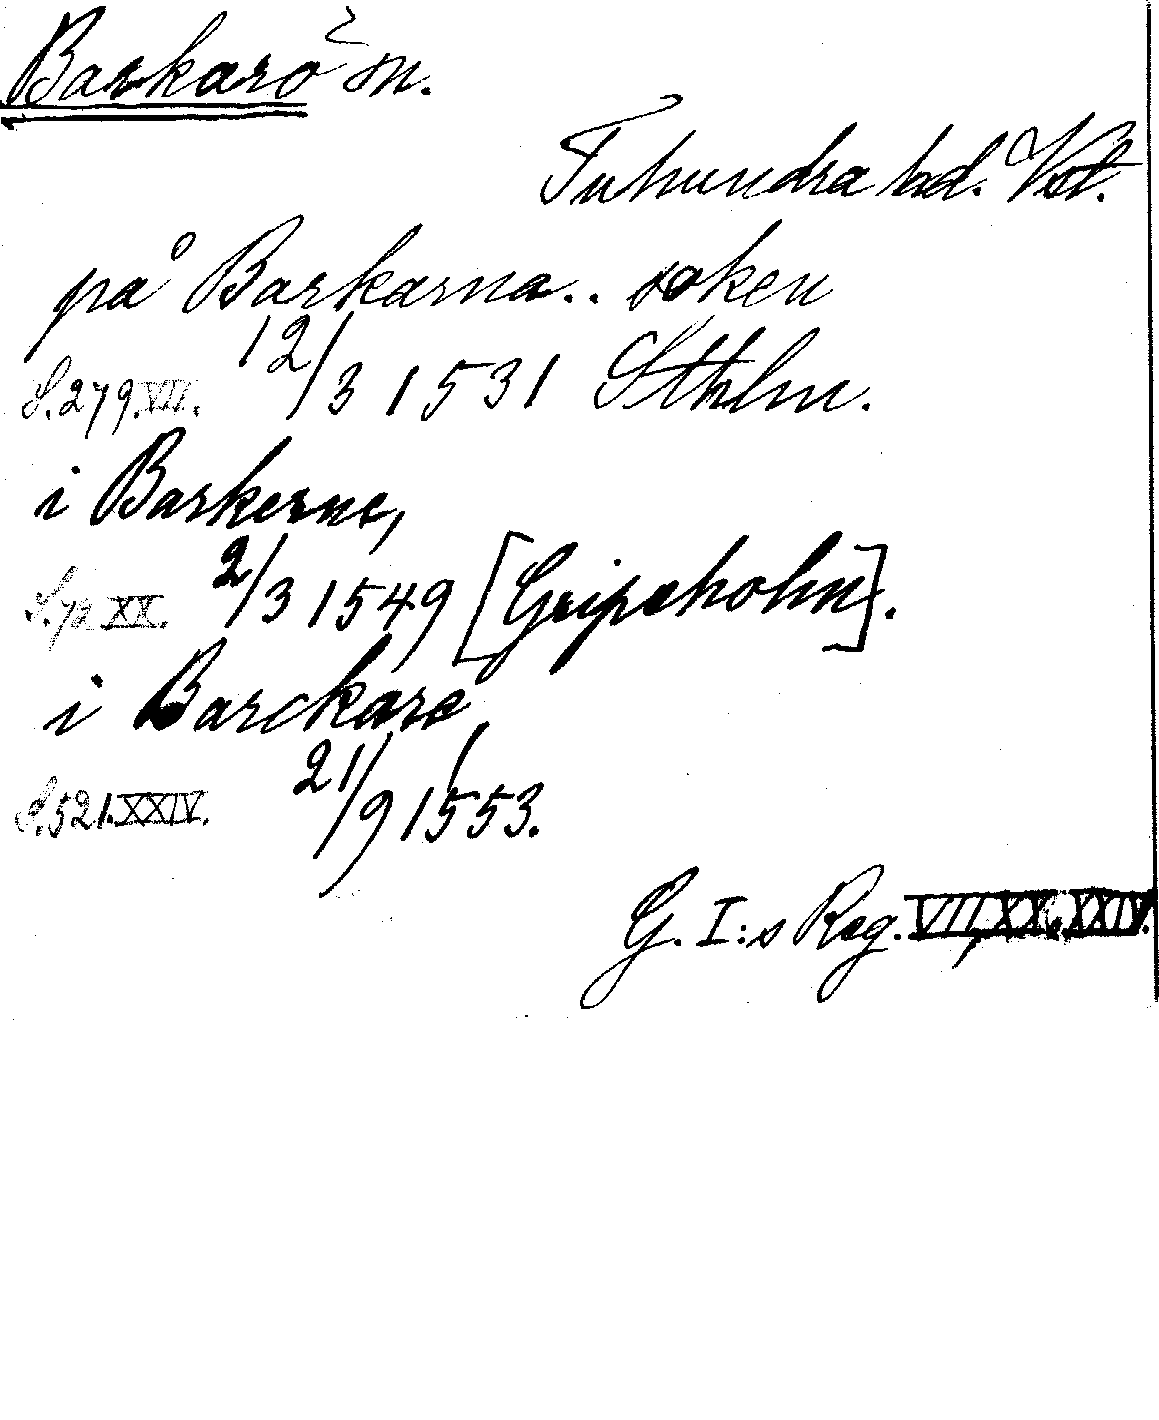 Barkarö sn.
Tuhundra hd. Vstl.
på Barkarna.. soken
12/3 1531 Sthlm.
S. 279. VII.
i Barkerne,
2/3 1549 [Gripsholm].
S. 72 XX.
i Barckare,
21/9 1553.
S. 521. XXIV.
G. I:s Reg. VII, XX, XXIV.